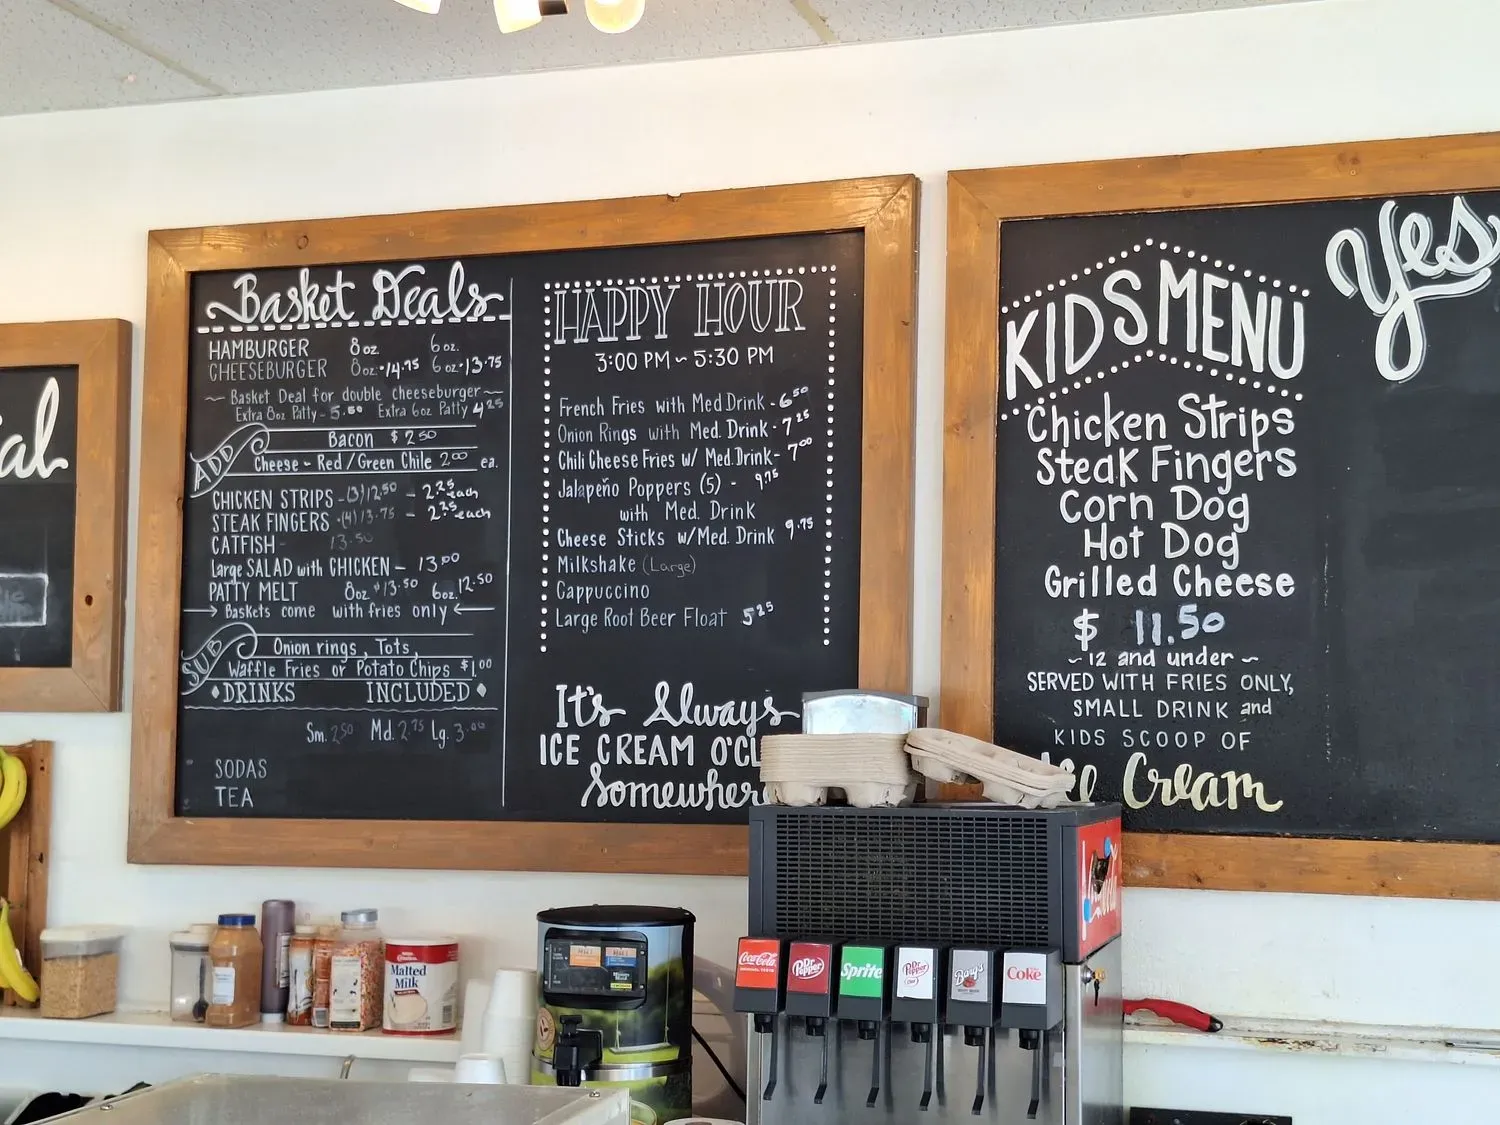 ial
Basket Deals
HAMBURGER 8 oz. 6 oz.
CHEESEBURGER 8 oz. 14.75 6 oz. 13.75
~ Basket Deal for double cheeseburger ~
Extra 8oz Patty - 5.50 Extra 6oz Patty 4.25
ADD
Bacon $ 2.50
Cheese - Red / Green Chile 2.00 ea.
CHICKEN STRIPS - (3) 12.50 - 2.25 each
STEAK FINGERS - (4) 13.75 - 2.25 each
CATFISH - 13.50
Large SALAD with CHICKEN - 13.00
PATTY MELT 8oz $13.50 6oz. 12.50
→ Baskets come with fries only ←
SUB
Onion rings, Tots,
Waffle Fries or Potato Chips $1.00
♦DRINKS INCLUDED♦
Sm. 2.50 Md. 2.75 Lg. 3.00
SODAS
TEA
HAPPY HOUR
3:00 PM ~ 5:30 PM
French Fries with Med Drink - 6.50
Onion Rings with Med. Drink - 7.25
Chili Cheese Fries w/ Med. Drink - 7.00
Jalapeño Poppers (5) - 9.75
with Med. Drink
Cheese Sticks w/Med. Drink 9.75
Milkshake (Large)
Cappuccino
Large Root Beer Float 5.25
It's Always
ICE CREAM O'CL
Somewhere
KIDS MENU
Chicken Strips
Steak Fingers
Corn Dog
Hot Dog
Grilled Cheese
$ 11.50
~ 12 and under ~
SERVED WITH FRIES ONLY,
SMALL DRINK and
KIDS SCOOP OF
Ice Cream
Yes
Malted
Milk
Coca-Cola
Dr Pepper
Sprite
Dr Pepper
Barq's
Coke